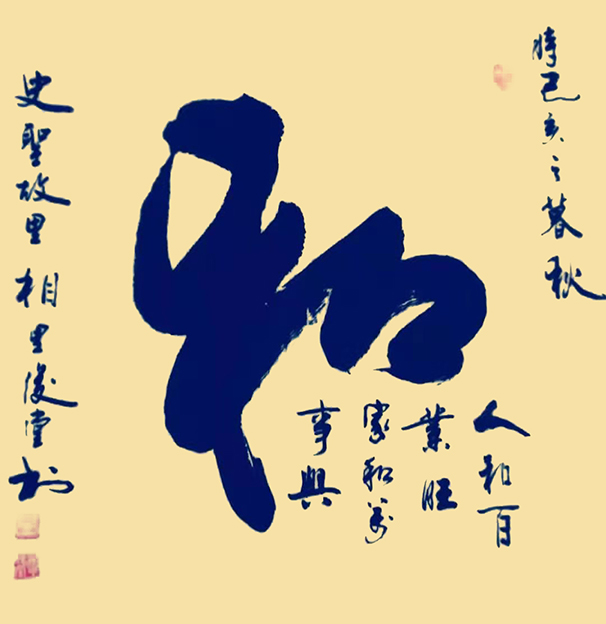 時己亥之暮秋
和
人和百
業旺
家和萬
事興
史聖故里 相里俊堂书